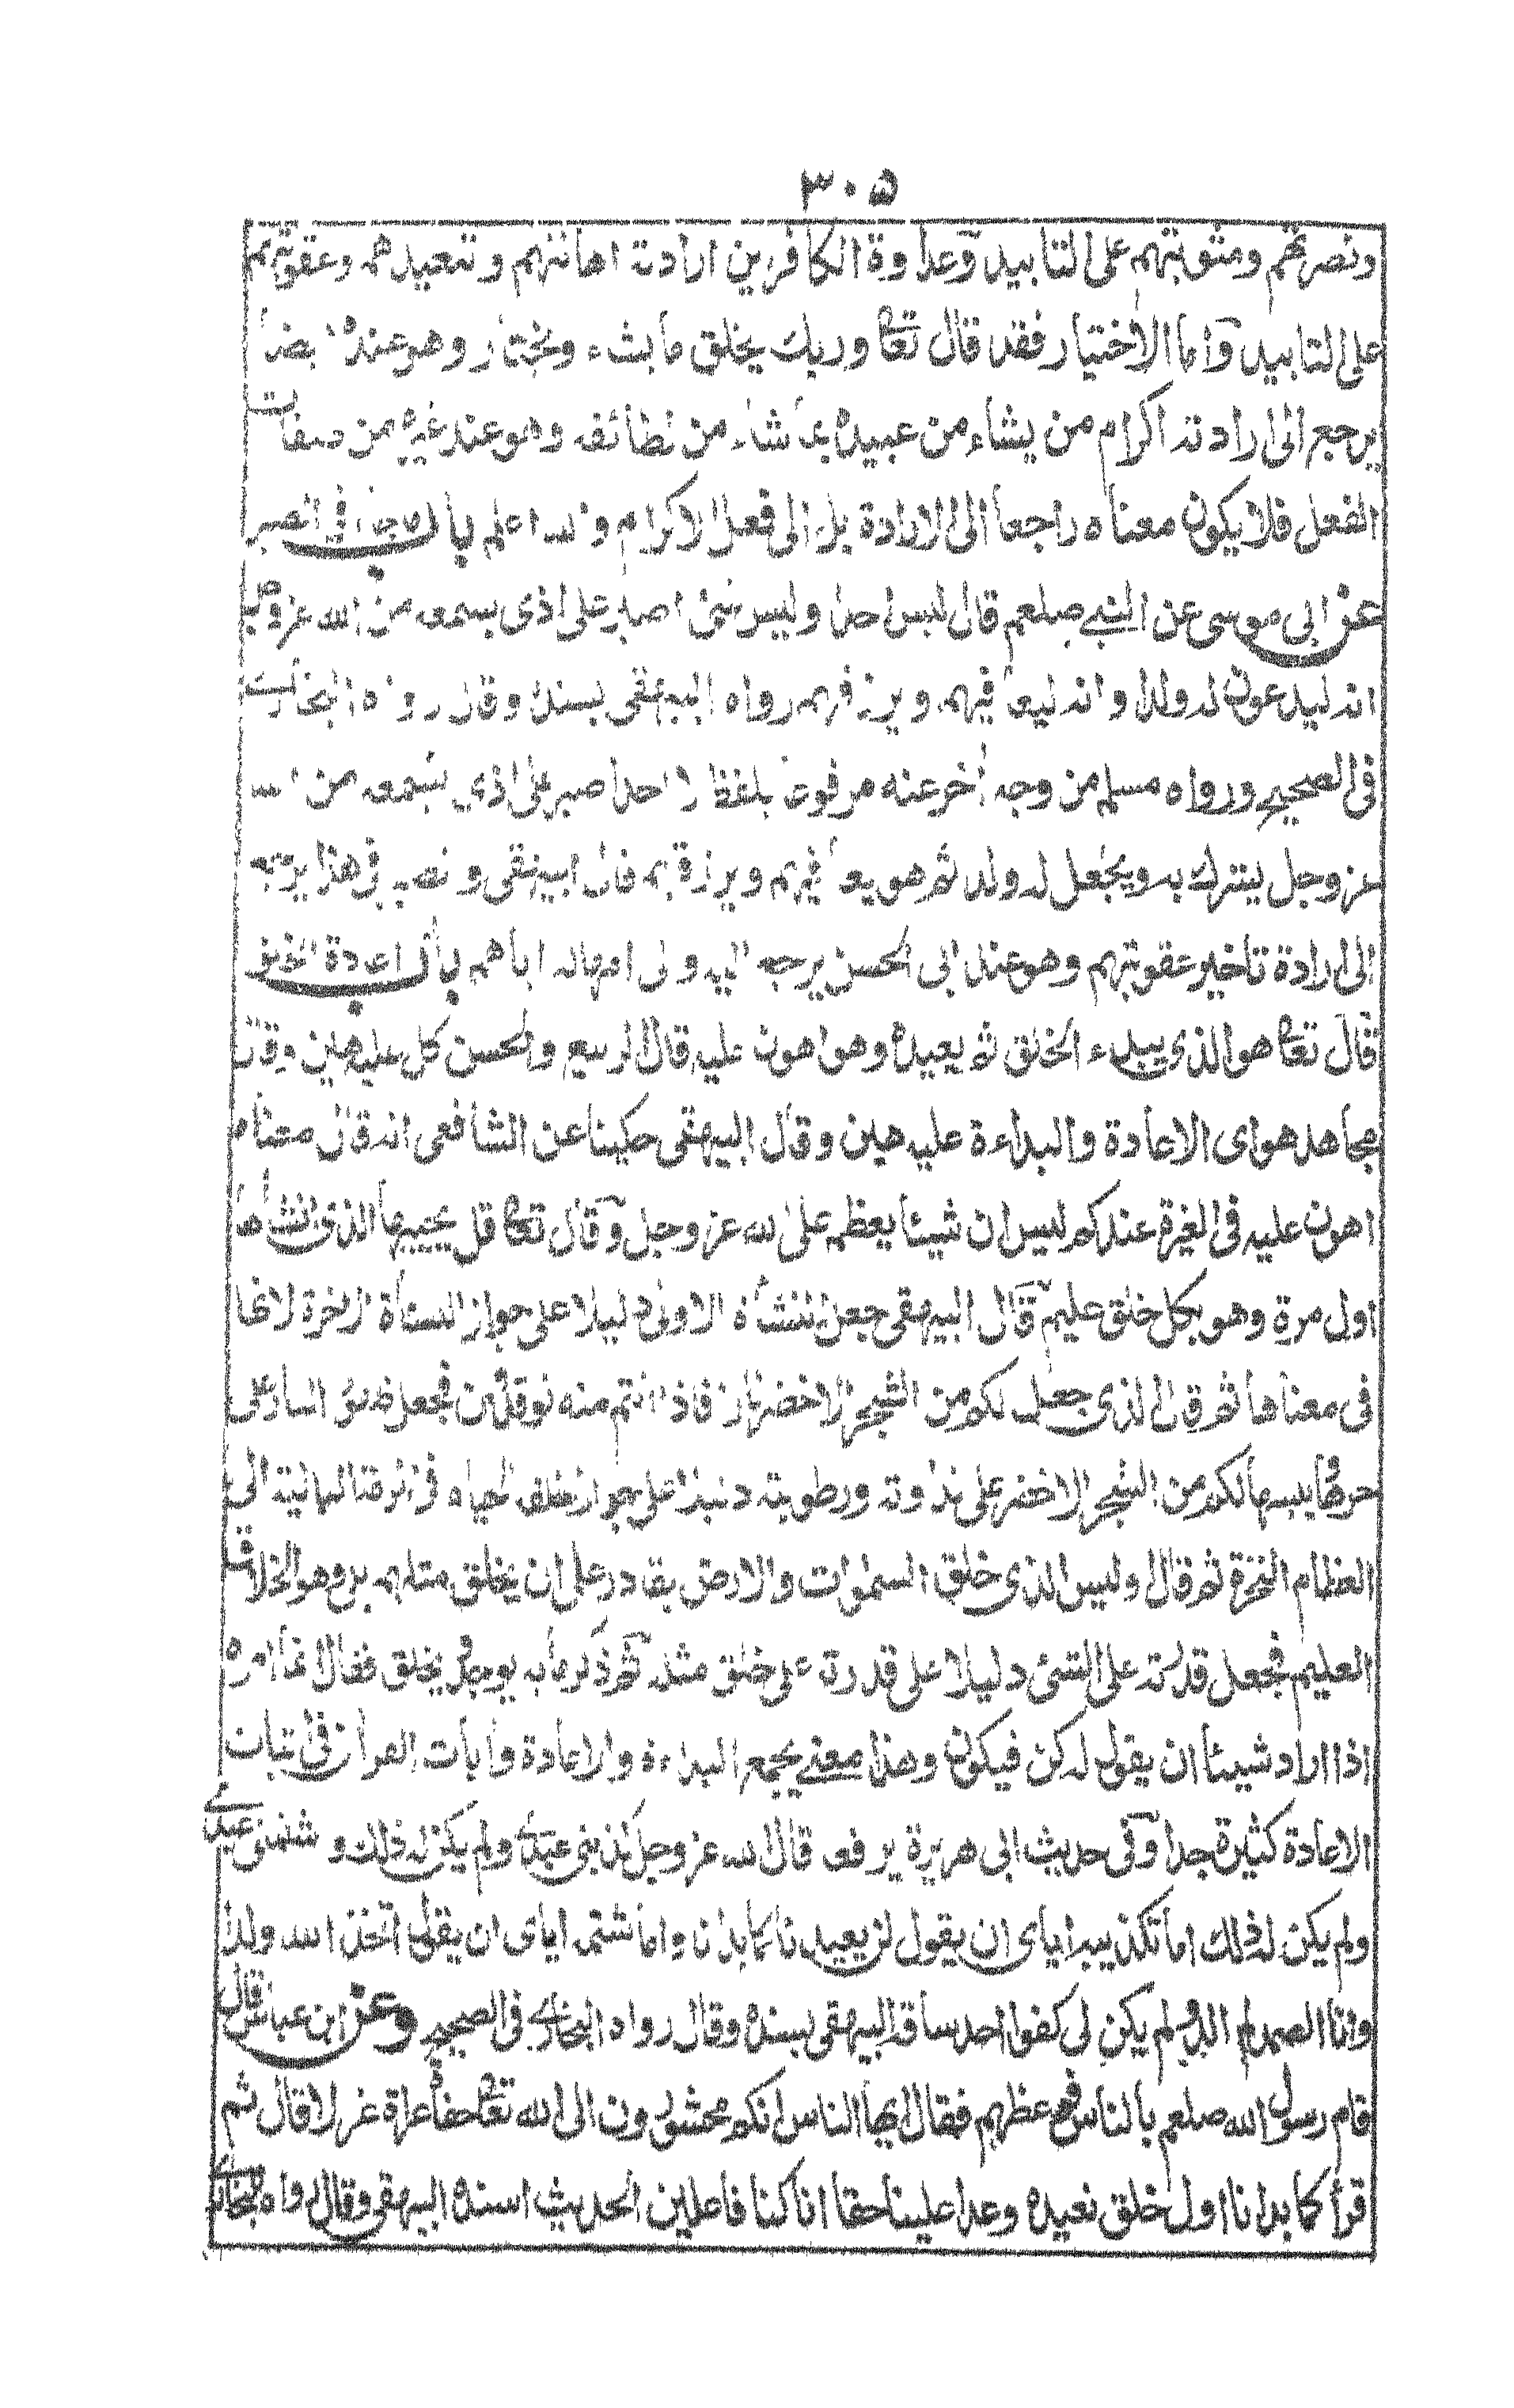 ٣٠٥
ونصرتهم ومثوبتهم على التابيد وعداوة الكافرين ارادته اهانتهم وتبعيدهم وعقوبتهم
على التابيد واما الاختيار فقد قال تعالى وربك يخلق ما يشاء ويختار وهو عنده ايضا
يرجع الى ارادته اكرام من يشاء من عبيده بما شاء من لطائفه وهو عند غيره من صفات
الفعل فلا يكون معناه راجعا الى الارادة بل الى فعل الاكرام والله اعلم باب ما جاء في الصبر
عن ابي موسى عن النبي صلعم قال ليس احد وليس شئ اصبر على اذى يسمعه من الله عز وجل
انه ليدعون له ولدا وانه ليعا فيهم ويرزقهم رواه البيهقي بسنده وقال رواه البخاري
في الصحيح ورواه مسلم من وجه اخر عنه مرفوعا بلفظ لا احد اصبر على اذى يسمعه من الله
عز وجل يشرك به ويجعل له ولد ثم هو يعا فيهم ويرزقهم قال البيهقي و في هذا يرجع
الى ارادة تاخير عقوبتهم وهو عند ابي الحسن يرجع اليه والى امهاله اياهم باب اعادة الخلق
قال تعالى هو الذى يبدء الخلق ثم يعيده وهو اهون عليه قال الربيع والحسن كل عليه هين وقال
مجاهد هو اى الاعادة والبداءة عليه هين وقال البيهقي حكينا عن الشافعى انه قال معناه
اهون عليه فى العبرة عندكم ليس ان شيئا يعظم على الله عز وجل وقال تعالى قل يحييها الذى انشاها
اول مرة وهو بكل خلق عليم قال البيهقي جعل النشأة الاولى دليلا على جواز النشأة الاخرة لانها
فى معناها ثم قال الذى جعل لكم من الشجر الاخضر نارا فاذا انتم منه توقدون فجعل ظهور النار على
حرها ويبسها لكم من الشجر الاخضر على نداوته ورطوبته دليلا على جواز خلقه الحياه في الرمة البالية الى
العظام النخرة ثم قال وليس الذى خلق السموات والارض بقادر على ان يخلق مثلهم بلى وهو الخلاق
العليم فجعل قدرته على الشئ دليلا على قدرته على خلق مثله ثم ذكر ما به يوجد ويخلق فقال انما امره
اذا اراد شيئا ان يقول له كن فيكون وهذا معنى يجمع البداءة والاعادة وايات القرأن فى اثبات
الاعادة كثيرة جدا وفى حديث ابى هريرة يرفعه قال الله عز وجل كذبنى عبدى ولم يكن له ذلك وشتمنى عبدى
ولم يكن له ذلك اما تكذيبه اياى ان يقول لن يعيدنا كما بدانا واما شتمه اياى ان يقول اتخذ الله ولدا
وانا الصمد لم الد ولم يكن لى كفوا احد ساقه البيهقى بسنده وقال رواه البخارى فى الصحيح وعن ابن عباس قال
قام رسول الله صلعم بالناس فوعظهم فقال ايها الناس انكم محشورون الى الله تعالى حفاة عراة غرلا قال ثم
قرأ كما بدانا اول خلق نعيده وعدا علينا حقا انا كنا فاعلين الحديث اسنده البيهقى وقال رواه البخارى